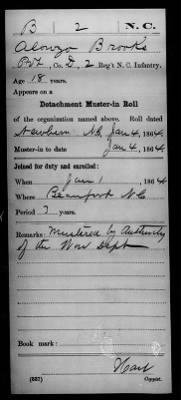 B 2 N.C.
Alonzo Brooks
Pvt, Co. D, 2 Reg't N. C. Infantry.
Age 18 years.
Appears on a
Detachment Muster-in Roll
of the organization named above. Roll dated
Newbern NC Jan 4, 1864.
Muster-in to date Jan 4, 1864
Joined for duty and enrolled:
When Jan 1, 1864
Where Beaufort NC
Period 3 years.
Remarks: Mustered by Authority
of the War Dept
Book mark:
Hart
(337) Copyist.